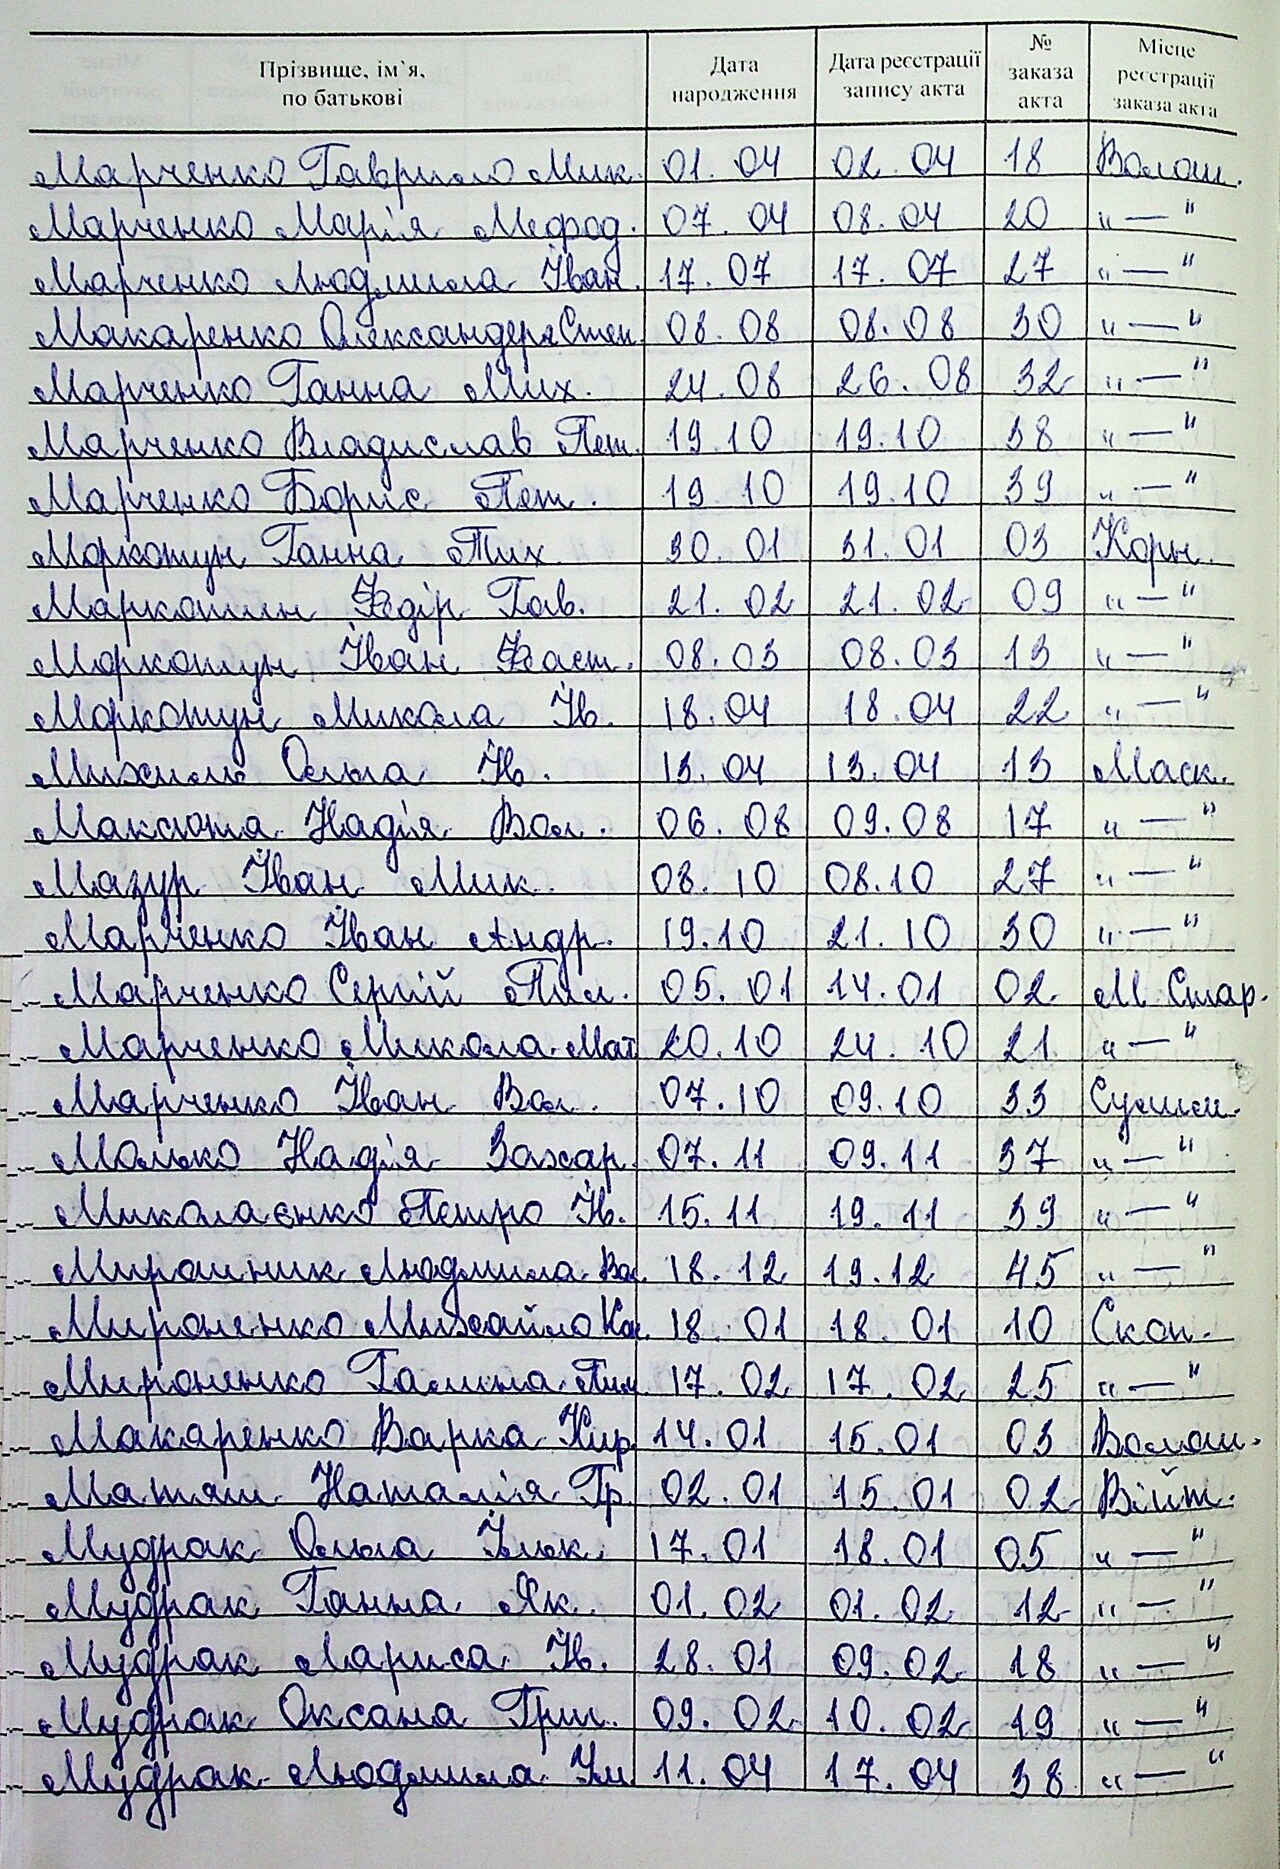 Прізвище, ім`я, по батькові Дата народження Дата реєстрації запису акта № заказа акта Місце реєстрації заказа акта
Марченко Гаврило Мик. 01. 04 02. 04 18 Волош.
Марченко Марія Мефод. 07. 04 08. 04 20 „ — "
Марченко Людмила Іван. 17. 07 17. 07 27 „ — "
Макаренко Олександра Степ. 08. 08 08. 08 30 „ — "
Марченко Ганна Мих. 24. 08 26. 08 32 „ — "
Марченко Владислав Пет. 19.10 19.10 38 „ — "
Марченко Борис Пет. 19. 10 19.10 39 „ — "
Моркотун Ганна Тих. 30. 01 31. 01 03 Корн.
Маркотин Федір Гав. 21. 02 21. 02 09 „ — "
Моркотун Іван Фаст. 08. 03 08. 03 13 „ — "
Моркотун Микола Ів. 18. 04 18. 04 22 „ — "
Ольга Ів. 13. 04 13. 04 13 Маск.
Максюта Надія Вол. 06. 08 09. 08 17 „ — "
Мазур Іван Мик. 08. 10 08.10 27 „ — "
Марченко Іван Андр. 19.10 21. 10 30 „ — "
Марченко Сергій 05. 01 14. 01 02 М. Стар.
Марченко Микола Мат 20. 10 24. 10 21 „ — "
Марченко Іван Вол. 07. 10 09. 10 33
Малько Надія Захар. 07. 11 09. 11 37 „ — "
Миколаєнко Петро Ів. 15. 11 19. 11 39 „ — "
Мирошник Людмила Ва. 18. 12 19. 12 45 „ — "
Мироненко Михайло 18. 01 18. 01 10 Скоп.
Мироненко Галина Пил. 17. 02 17. 02 25 „ — "
Макаренко Варка Кир. 14. 01 15. 01 03 Волош.
Матяш Наталія Гр. 02. 01 15. 01 02 Війт.
Мудрак Ольга 17. 01 18. 01 05 „ — "
Мудрак Ганна Як. 01. 02 01. 02 12 „ — "
Мудрак Лариса Ів. 28. 01 09. 02 18 „ — "
Мудрак Оксана Григ. 09. 02 10. 02 19 „ — "
Мудрак Людмила 11. 04 17. 04 38 „ — "